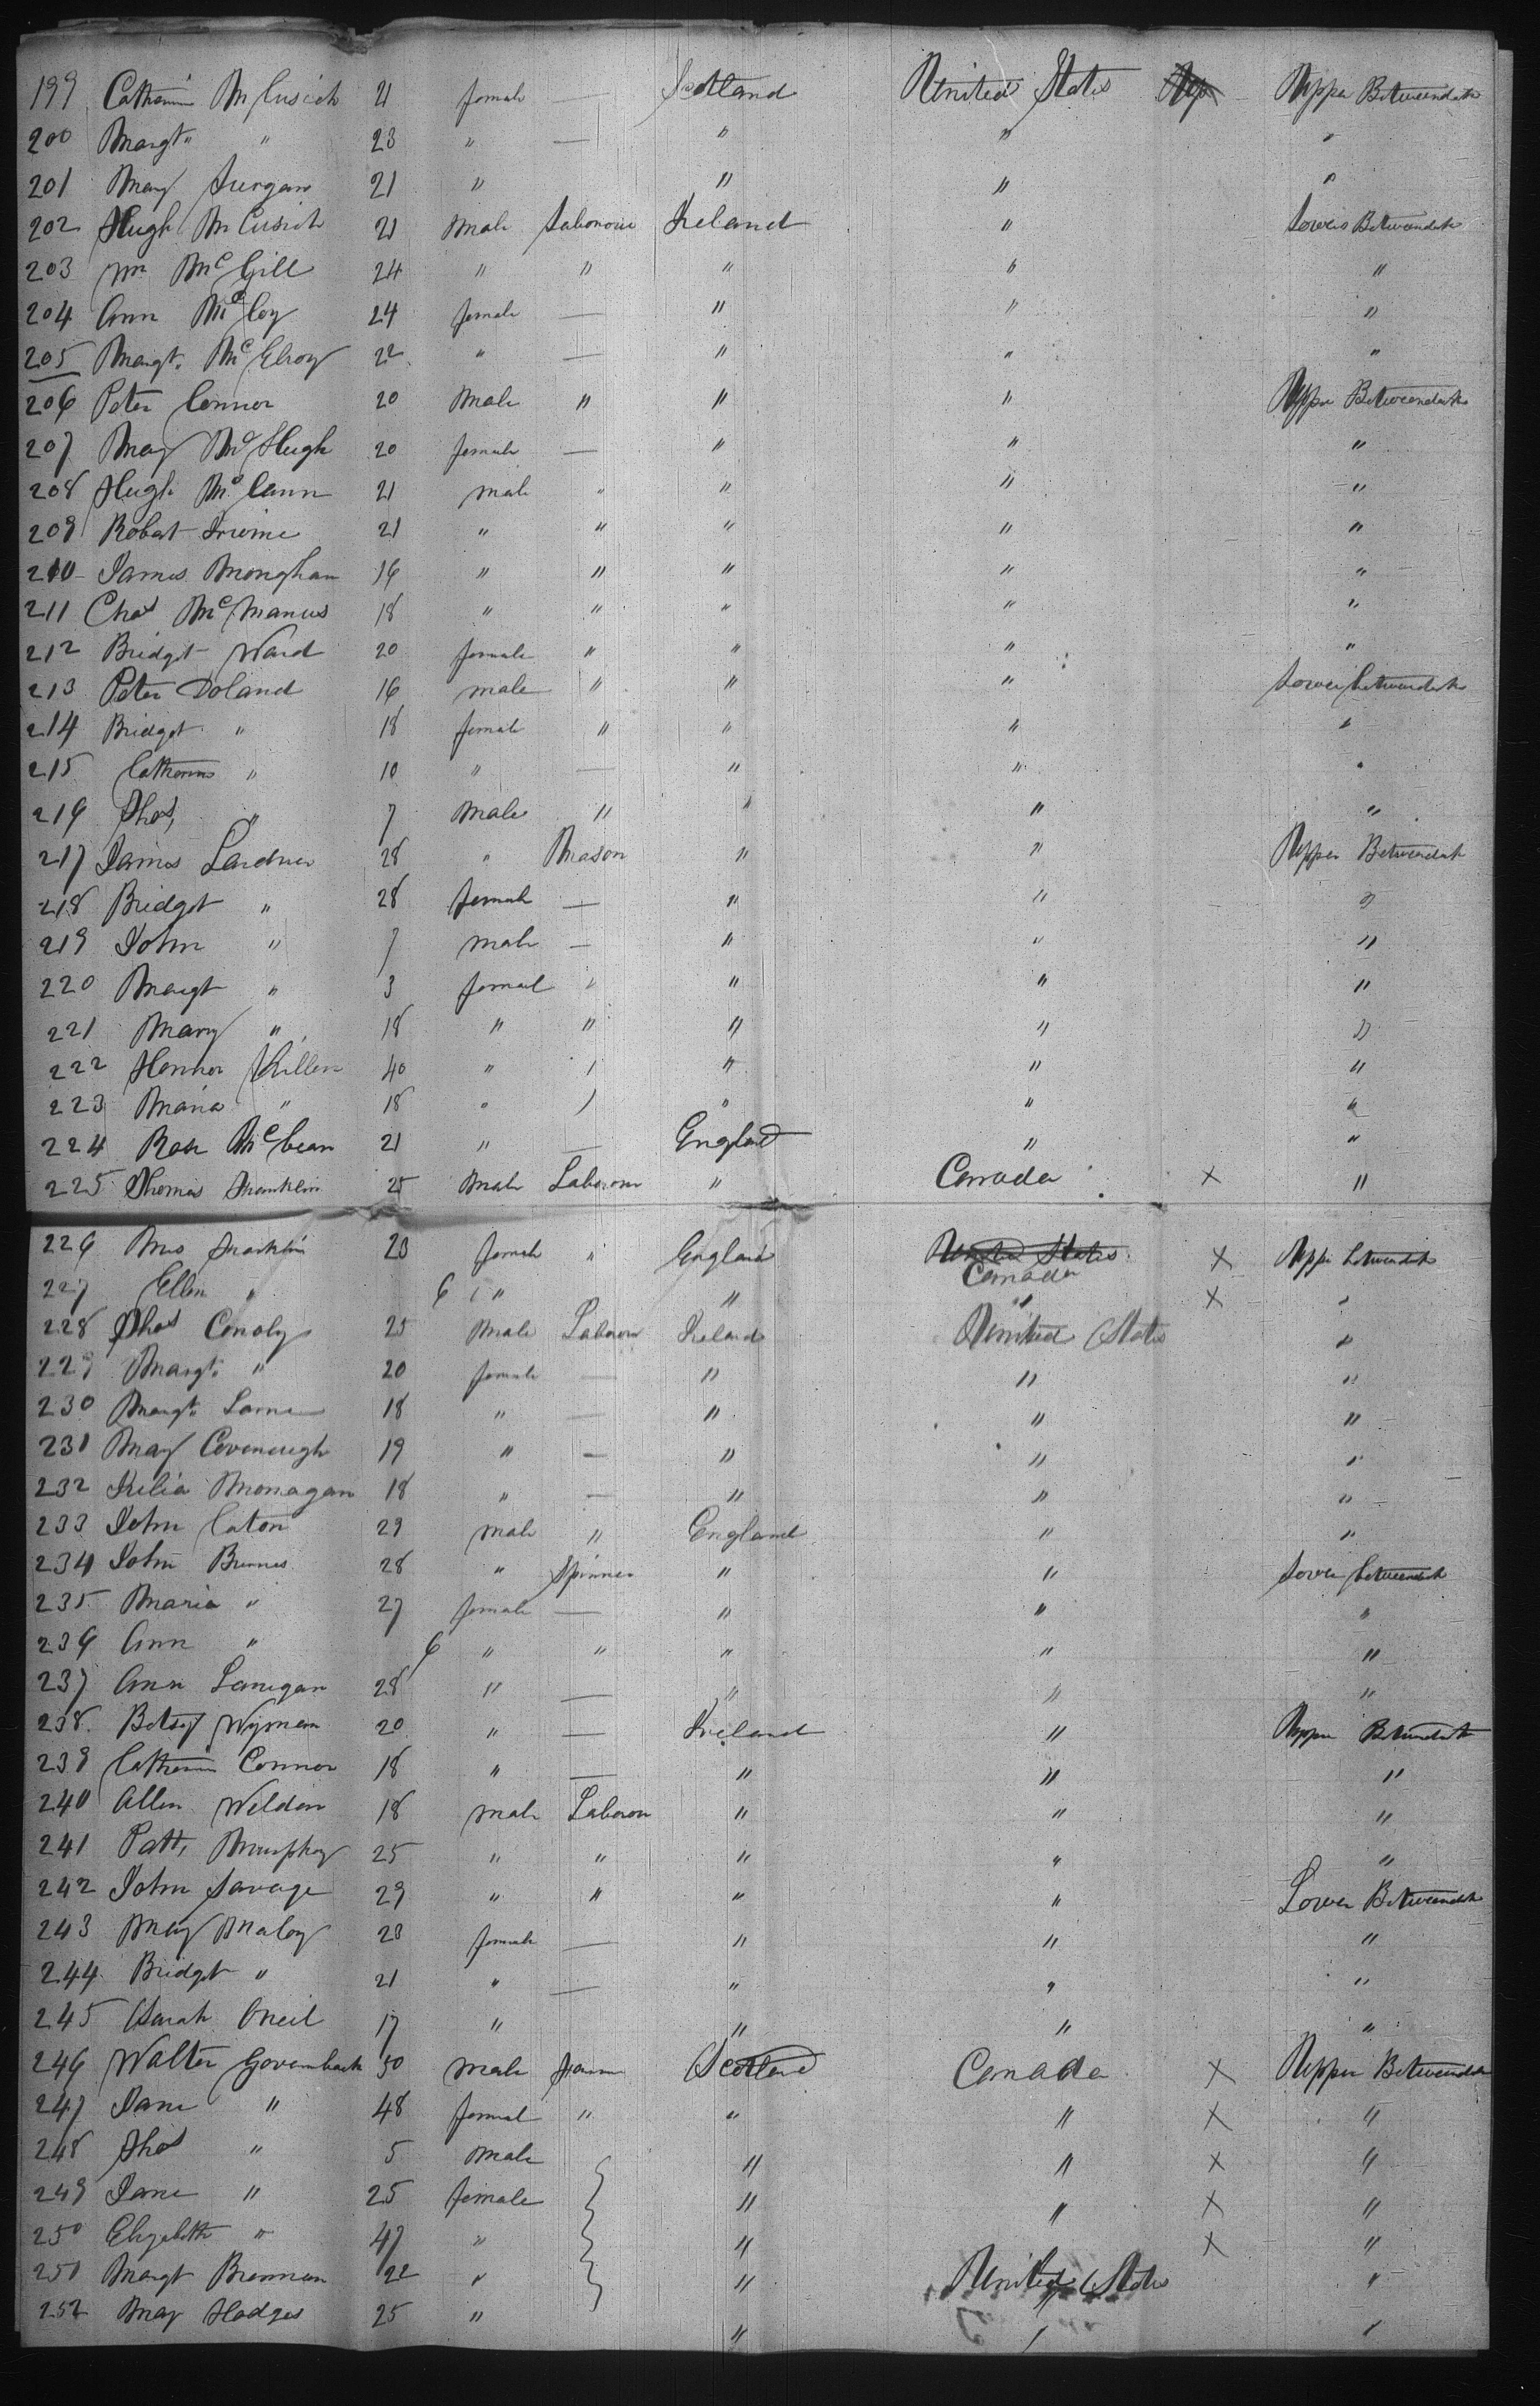 199 Catherine McCusick 21 female — Scotland United States Upper Betweendeck
200 Margt. " 23 " — " " "
201 Mary 21 " " " "
202 Hugh McCusick 21 Male Labourer Ireland " Lower Betweendeck
203 Wm McGill 24 " " " " "
204 Ann McCoy 24 female — " " "
205 Margt. McElroy 22 " — " " "
206 Peter Connor 20 Male " " " Upper Betweendeck
207 Mary McHugh 20 female — " " "
208 Hugh McCann 21 male " " " "
209 Robert Irvine 21 " " " " "
210 James Monghan 16 " " " " "
211 Chas McManus 18 " " " " "
212 Bridget Ward 20 female " " " "
213 Peter Doland 16 male " " " Lower betweendeck
214 Bridget " 18 female " " " "
215 Catherine " 10 " — " " "
216 Thos, " 7 Male " " " "
217 James Lardner 28 " Mason " " Upper Betweendeck
218 Bridget " 28 female — " " "
219 John " 7 male — " " "
220 Margt " 3 femal " " " "
221 Mary " 18 " " " " "
222 Honnor Killen 40 " " " " "
223 Maria " 18 " " " " "
224 Rose McCean 21 " — England " "
225 Thomas Franklin 25 Male Labourer " Canada X "
226 Mrs Franklin 23 female " England United States Canada X Upper betweendeck
227 Ellen " 6 " " " X "
228 Thos Conoly 25 Male Labourer Ireland United States "
229 Margt. " 20 female — " " "
230 Margt. 18 " — " " "
231 Mary Cavenaugh 19 " — " " "
232 Monagan 18 " — " " "
233 John Caton 29 male " England " "
234 John 28 " Spinner " " Lower betweendeck
235 Maria " 27 female — " " "
236 Ann " 6 " " " " "
237 Ann Lanigan 28 " — " " "
238. Betsy Wyman 20 " — Ireland " Upper Betweendeck
239 Catherine Connor 18 " — " " "
240 Allen Weldon 18 male Labourer " " "
241 Patt, Murphey 25 " " " " "
242 John Savage 29 " " " " Lower Betweendeck
243 Mary Maloy 23 female — " " "
244 Bridget " 21 " — " " "
245 Sarah Oneil 17 " " " "
246 Walter 50 male Farm Scotland Canada X Upper Betweendeck
247 Jane " 48 femal " " " X "
248 Thos " 5 Male " " X "
249 Jane " 25 female " " X "
250 Elizabeth " 47 " " " X "
251 Margt Brannan 22 " " United States "
252 Mary Hodges 25 " " " "